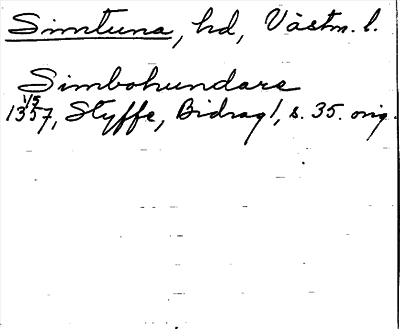 Simtuna, hd, Västm. l.
Simbohundare
1/5
1357, Styffe, Bidrag 1, s. 35. orig.